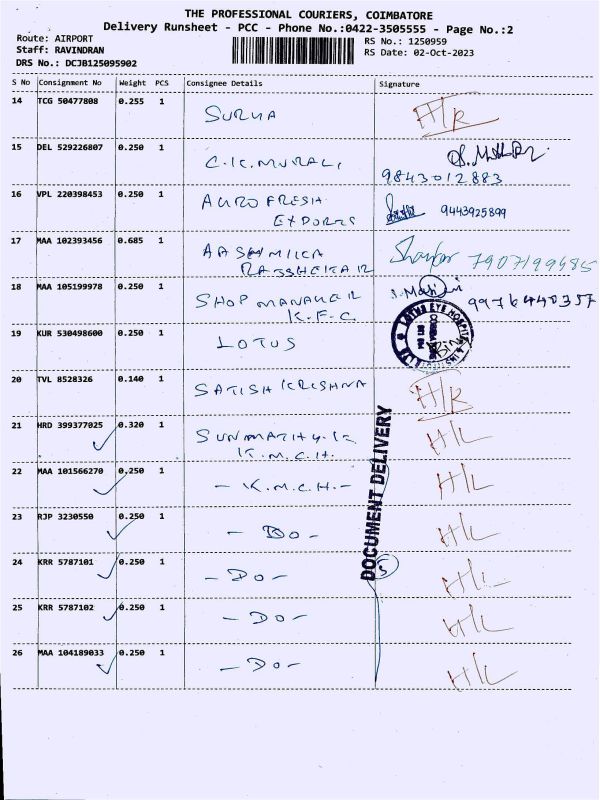 THE PROFESSIONAL COURIERS, COIMBATORE
Delivery Runsheet - PCC - Phone No.:0422-3505555 - Page No.:2
Route: AIRPORT
Staff: RAVINDRAN
DRS No.: DCJB125095902
RS No.: 1250959
RS Date: 02-Oct-2023
S No Consignment No Weight PCS Consignee Details Signature
14 TCG 50477808 0.255 1 SURYA H/R
15 DEL 529226807 0.250 1 C.K.MURALI
9843012883
16 VPL 220398453 0.250 1 AGRO FRESH
EXPORTS 9443925899
17 MAA 102393456 0.685 1 AASHMIKA
RAJSHEKAR 7907199485
18 MAA 105199978 0.250 1 SHOP MANAGER
K.F.C. 9976440357
19 KUR 530498600 0.250 1 LOTUS
LOTUS EYE HOSPITAL
20 TVL 8528326 0.140 1 SATISH KRISHNA H/R
21 HRD 399377025 0.320 1
K.M.C.H. H/L
22 MAA 101566270 0.250 1 - K.M.C.H. - H/L
23 RJP 3230550 0.250 1 - DO - H/L
24 KRR 5787101 0.250 1 - DO - H/L
25 KRR 5787102 0.250 1 - DO - H/L
26 MAA 104189033 0.250 1 - DO - H/L
DOCUMENT DELIVERY
5